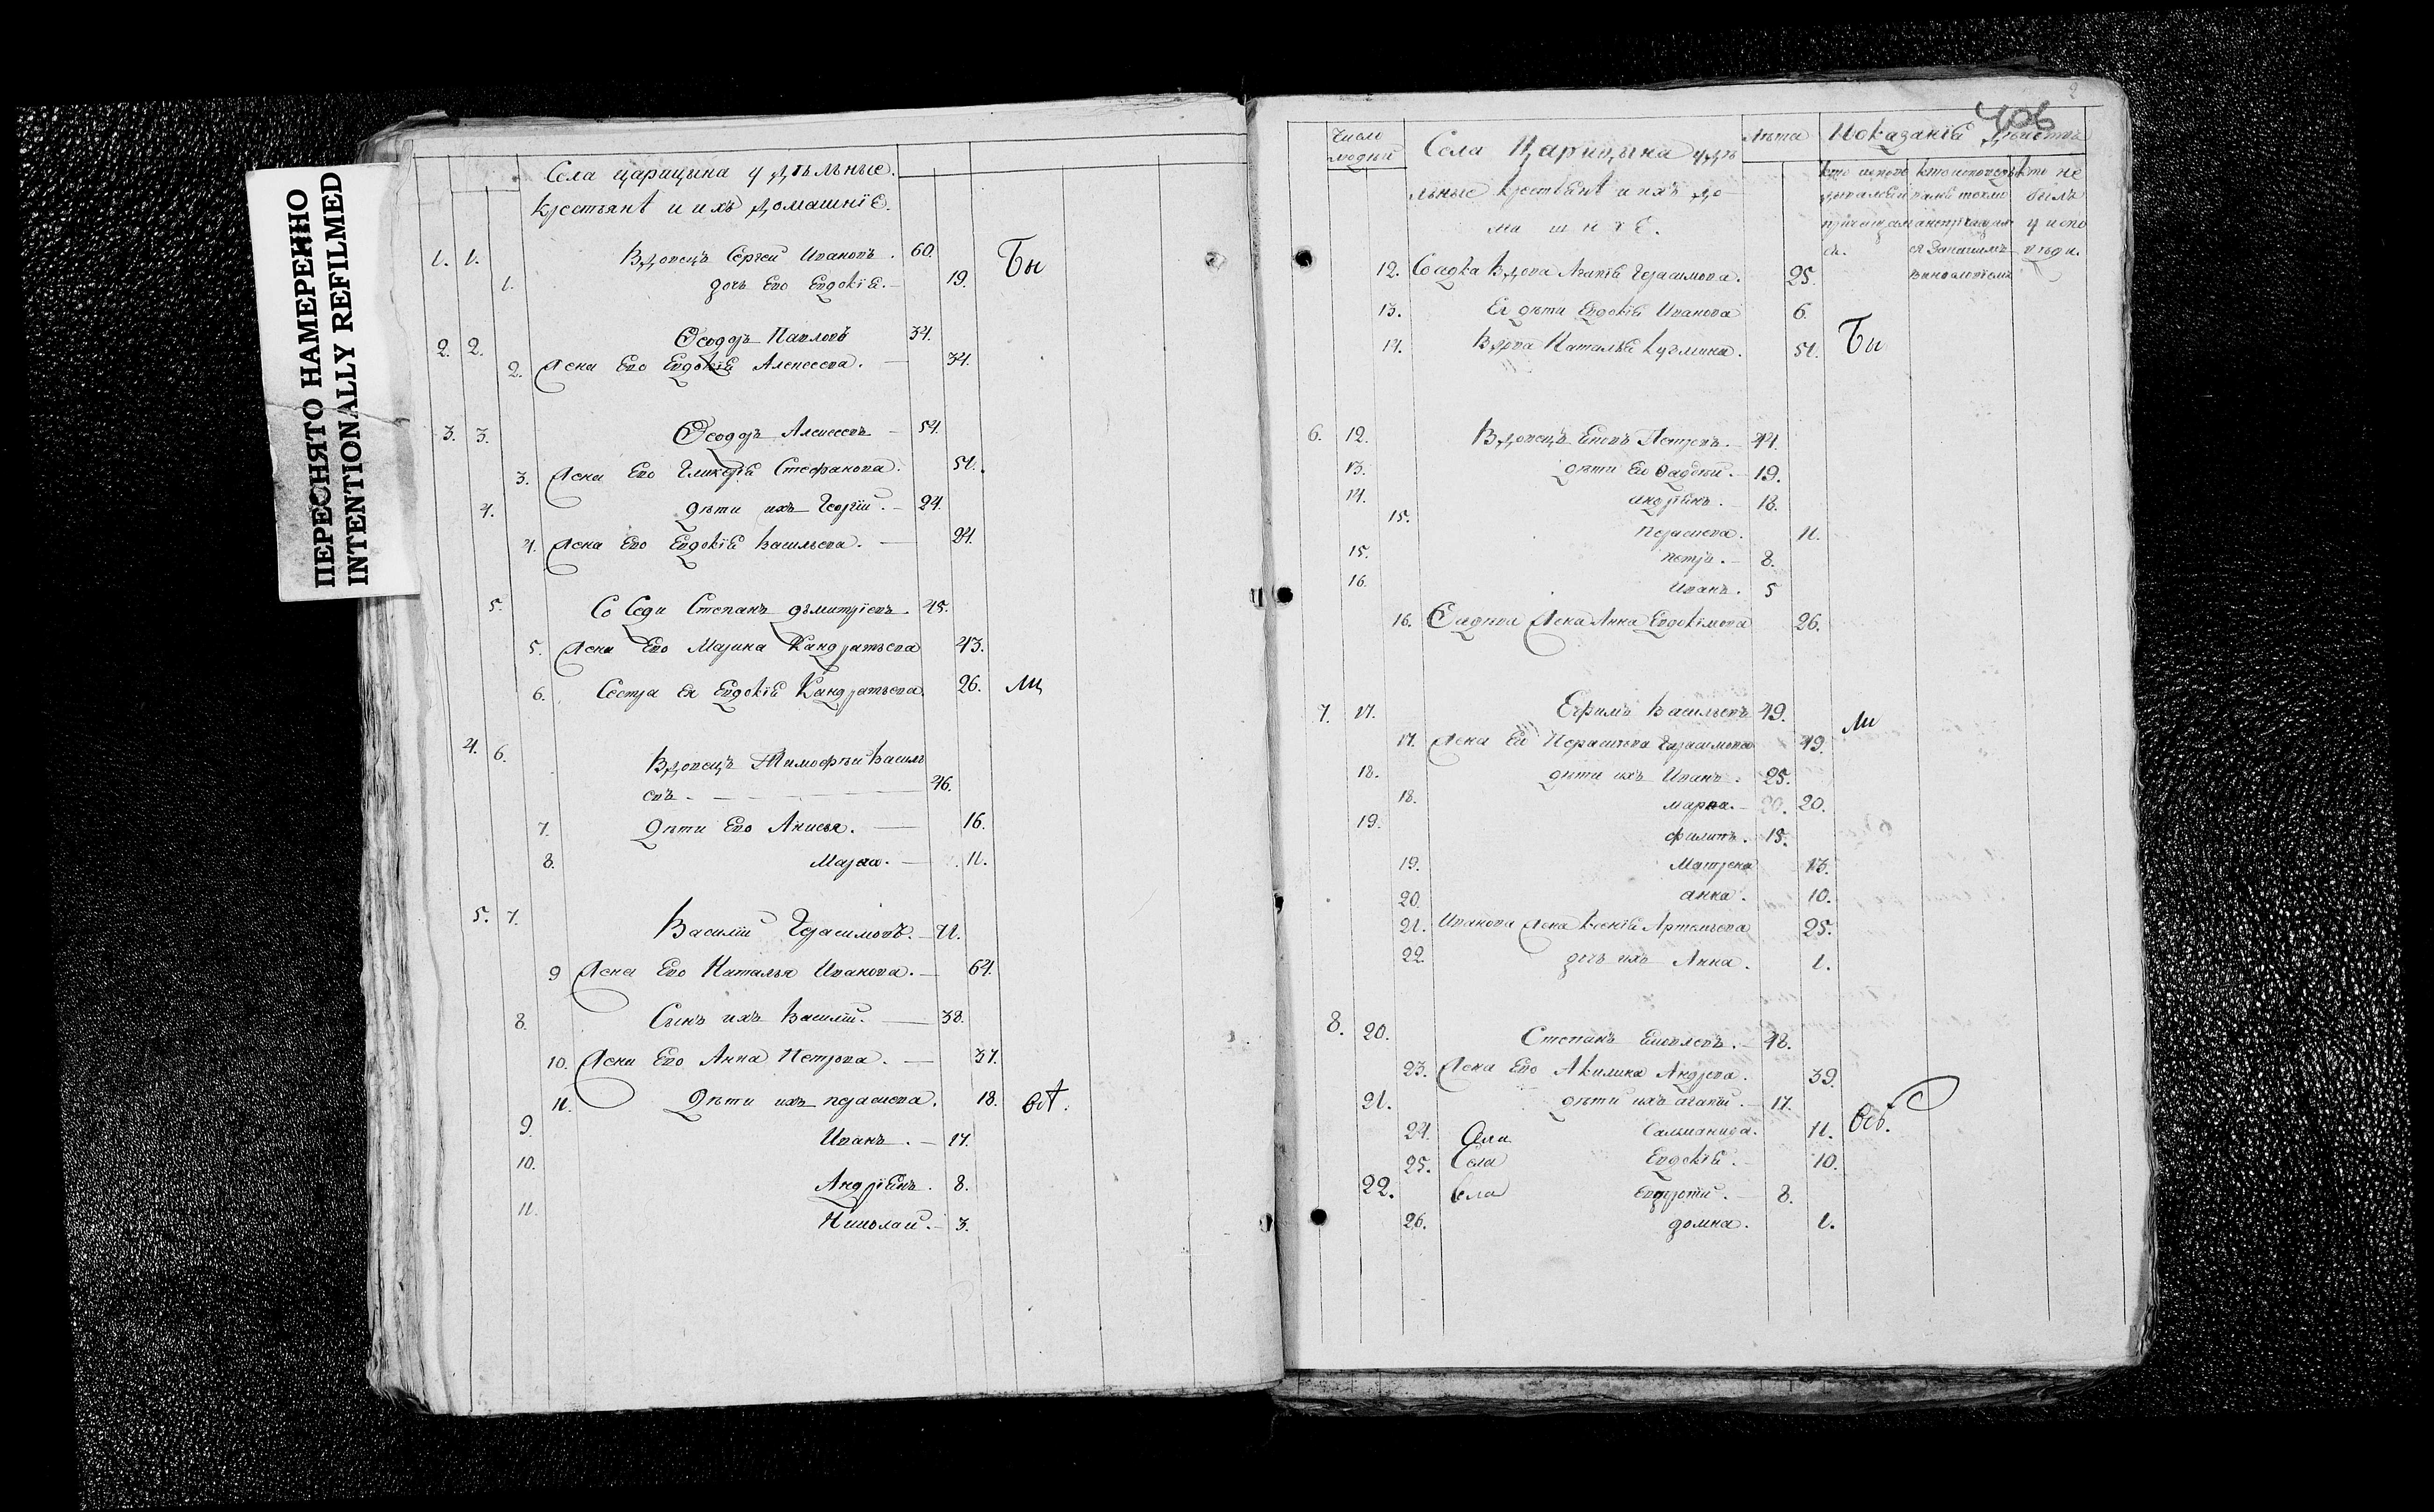 ПЕРЕСНЯТО НАМЕРЕННО
INTENTIONALLY REFILMED
Села царицына удѣльные
крестьянѣ и ихъ домашнїе.
1. 1. Вдовецъ Сергеи Ивановъ. 60.
1. дочь Его Евдокїя. 19.
Бы
2. 2. Ѳеодоръ Павловъ 34.
2. Жена Его Евдокїя Алексеева. 34.
3. 3. Ѳеодоръ Алексеевъ 54.
3. Жена Его Гликерїя Стефанова. 51.
4. дѣти ихъ Георгїи. 24.
4. Жена Его Евдокїя Васильева. 24.
5. Со Седи Степанъ дѣмитрїевъ. 45.
5. Жена Его Марина Кандратьева 43.
6. Сестра Ея Евдокїя Кандратьева. 26. ли
4. 6. Вдовецъ Тимофѣи Василь
евъ. 46.
7. Дѣти Его Анисья. 16.
8. Марѳа. 11.
5. 7. Василїи Герасимовъ. 71.
9 Жена Его Наталья Иванова. 64.
8. Сынъ ихъ Василїи. 38.
10. Жена Его Анна Петрова. 37.
11. Дѣти ихъ 18. всѣ.
9. Иванъ. 17.
10. Андрїянъ. 8.
11. Николаи. 3.
406
Число
людеи
Села Царицына удѣ
льные крестьянѣ и ихъ до
машнїе.
Лѣта
Показанїе
кто не
былъ
у испо
вѣди.
12. Солдка Вдова Агапїя Герасимова. 25.
13. Ея дѣти Евдокїя Иванова 6.
14. Вдова Наталья Кузмина. 51. Бы
6. 12. Вдовецъ Петровъ. 44.
13. дѣти Ево Фадѣи. 19.
14. андрїянъ. 18.
15. 11.
15. петръ. 8.
16. Иванъ. 5
16. Жена Анна Евдокимова 26.
7. 17. Ефимъ Васильевъ 49.
ли
17. Жена Ево Герасимова 49.
18. дѣти ихъ Иванъ. 25.
18. марѳа. 20.
19. филипъ. 15.
19. Матрена 13.
20. анна. 10.
21. Иванова Жена Ксенїя Артемьева 25.
22 дочь ихъ Анна. 1.
8. 20. Степанъ 48.
23. Жена Его Акилина Андрева. 39.
21. дѣти ихъ агапїи. 17.
24. Села 11. всѣ.
25. Села Евдокїя. 10.
22. Села 8.
26. домна. 1.